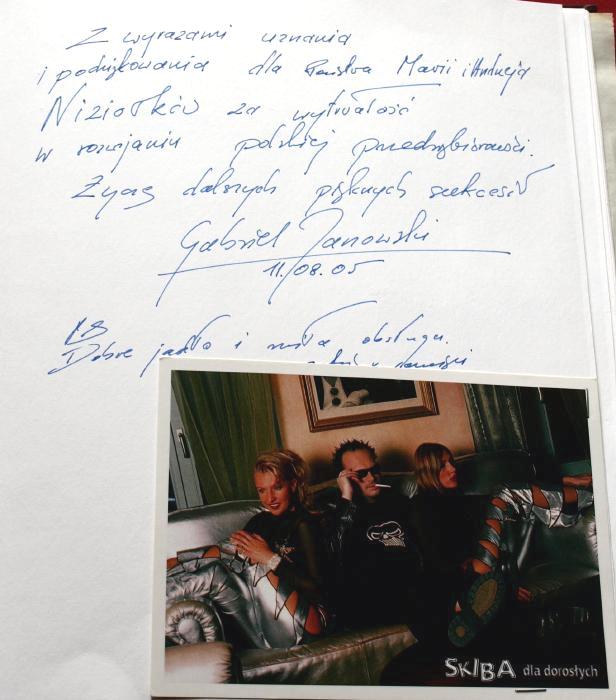 Z wyrazami uznania
i podziękowania dla Państwa Marii i Andrzeja
Niziołków za wytrwałość
w rozwijaniu polskiej przedsiębiorczości.
Życzę dalszych pięknych sukcesów
Gabriel Janowski
11.08.05
PS
Dobre jadło i miła obsługa.
SKIBA dla dorosłych